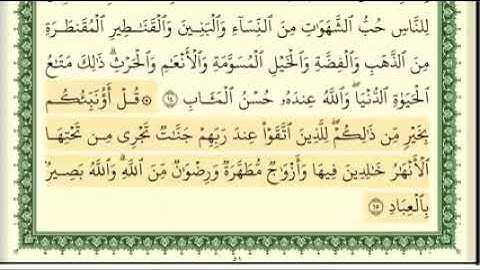 لِلنَّاسِ حُبُّ ٱلشَّهَوَٰتِ مِنَ ٱلنِّسَآءِ وَٱلْبَنِينَ وَٱلْقَنَٰطِيرِ ٱلْمُقَنطَرَةِ
مِنَ ٱلذَّهَبِ وَٱلْفِضَّةِ وَٱلْخَيْلِ ٱلْمُسَوَّمَةِ وَٱلْأَنْعَٰمِ وَٱلْحَرْثِ ۗ ذَٰلِكَ مَتَٰعُ
ٱلْحَيَوٰةِ ٱلدُّنْيَا ۖ وَٱللَّهُ عِندَهُۥ حُسْنُ ٱلْمَـَٔابِ ١٤ ۞ قُلْ أَؤُنَبِّئُكُم
بِخَيْرٍ مِّن ذَٰلِكُمْ ۚ لِلَّذِينَ ٱتَّقَوْا۟ عِندَ رَبِّهِمْ جَنَّٰتٌ تَجْرِى مِن تَحْتِهَا
ٱلْأَنْهَٰرُ خَٰلِدِينَ فِيهَا وَأَزْوَٰجٌ مُّطَهَّرَةٌ وَرِضْوَٰنٌ مِّنَ ٱللَّهِ ۗ وَٱللَّهُ بَصِيرٌۢ
بِٱلْعِبَادِ ١٥
٥١